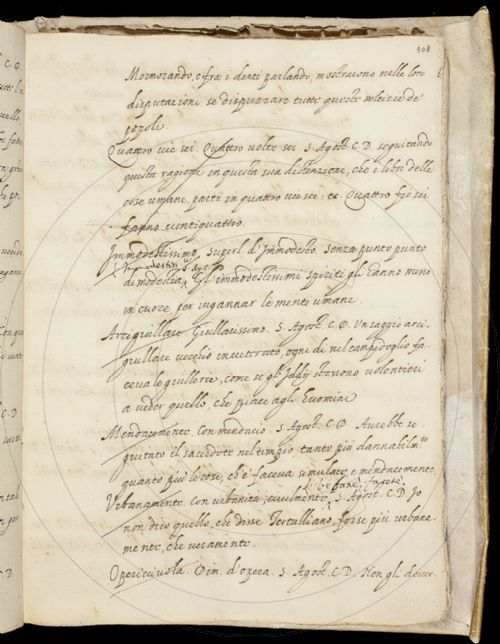 308
Mormorando, e fra i denti parlando, mostravono nelle lor
disputazioni se disprezzare tutte queste moltizie de
popoli
Quattro vie sei. Quattro volte sei. S. Agost. C. D. seguitando
questa ragione in questa sua distinzione, che è libri delle
cose umane parti in quattro vie sei: et Quattro fie sei
fanno ventiquattro.
Immodestissimo. Superl. d'Immodesto. Senza punto punto
Impudentiss. S. Ag. C.
di modestia. Gl'immodestissimi spiriti gli hanno messo
in cuore per ingannar le menti umane.
Arcigiullare Giullarissimo. S. Agost. C. D. Un saggio arci
giullare vecchio invetrato, ogni dì nel campidoglio fa
ceva le giullerie, come se gl'Iddij stessono volentieri
a veder quello, che piace agli huomini
Mendacemente. Con mendacio. S. Agost. C. D. Avrebbe se
guitato il sacerdote nel tempio tanto più dannabilmte
quanto più le cose, ch'e' faceva simulate, e mendacemente.
Urbanamente. Con urbanità, civilmente, S. Agost. C. D. Io
non dico quello, che disse Tertulliano, forse più urbana-
mente, che veramente.
Opericciuola. Dim. d'opera. S. Agost. C. D. Non gl.